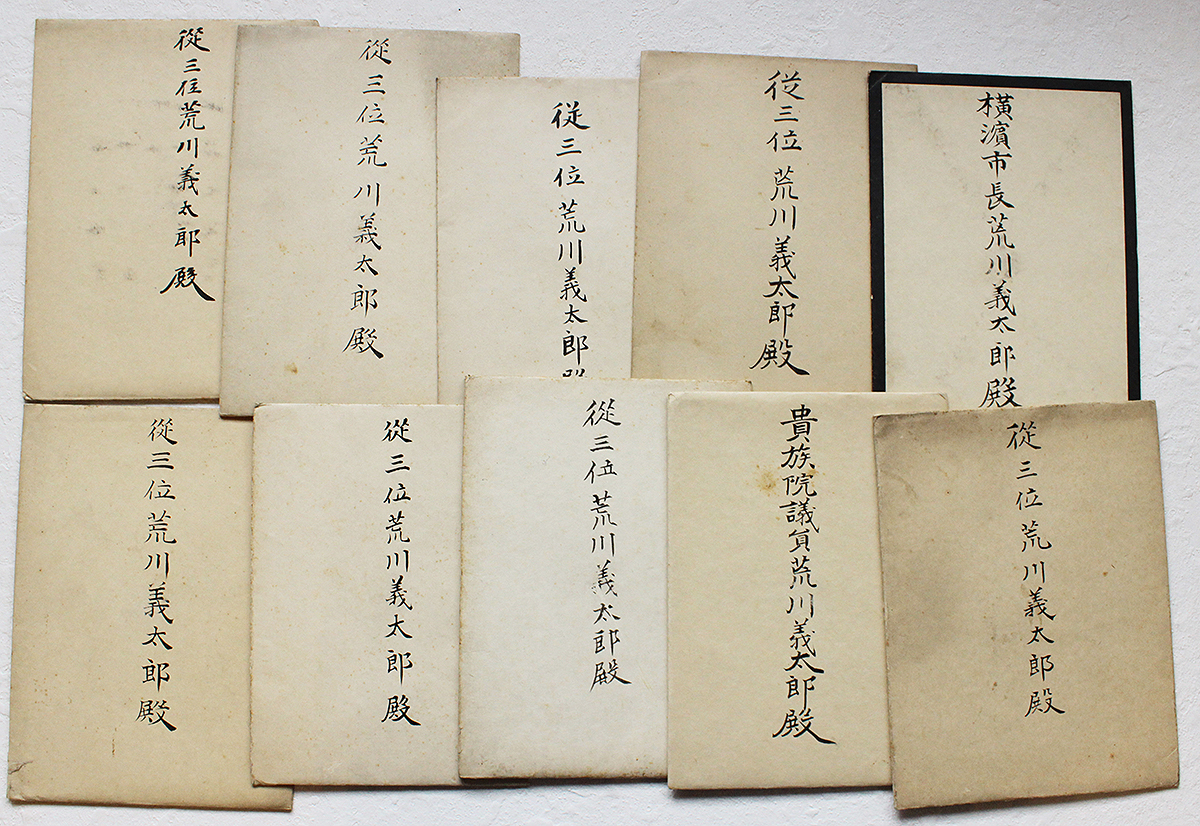 從三位荒川義太郎殿
從三位荒川義太郎殿
従三位荒川義太郎殿
従三位荒川義太郎殿
横濱市長荒川義太郎殿
從三位荒川義太郎殿
從三位荒川義太郎殿
從三位荒川義太郎殿
貴族院議員荒川義太郎殿
從三位荒川義太郎殿